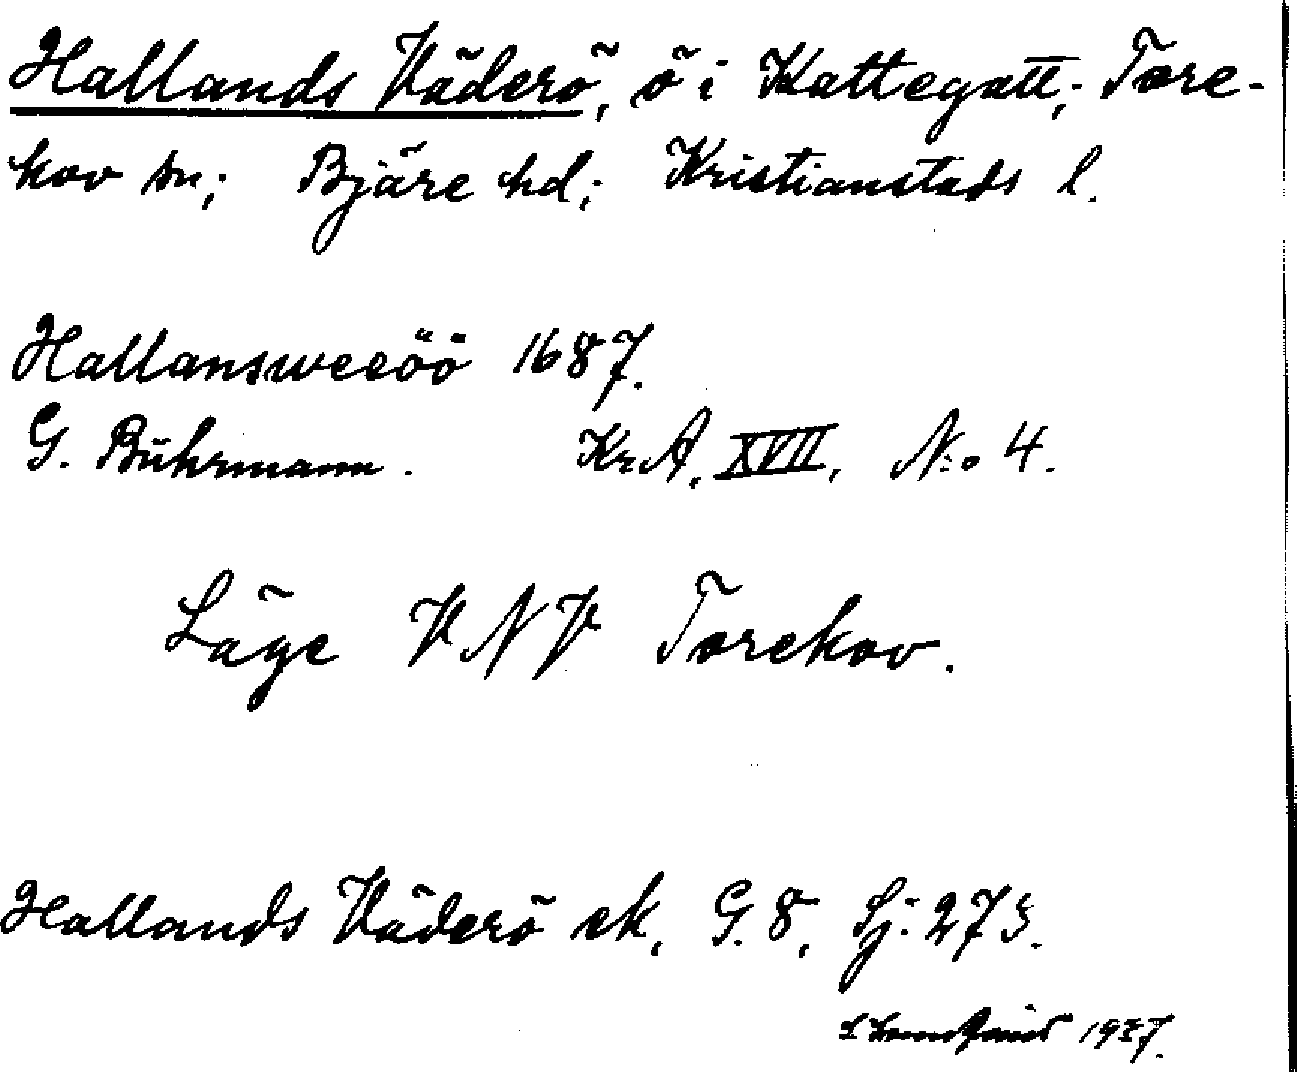 Hallands Väderö, ö i Kattegatt; Tore-
kov sn; Bjäre hd; Kristianstads l.
Hallansweeöö 1687.
G. Bührmann. KrA, XVII, N:o 4.
Läge VNV Torekov.
Hallands Väderö ek, G. 8, Sj: 273.
1937.